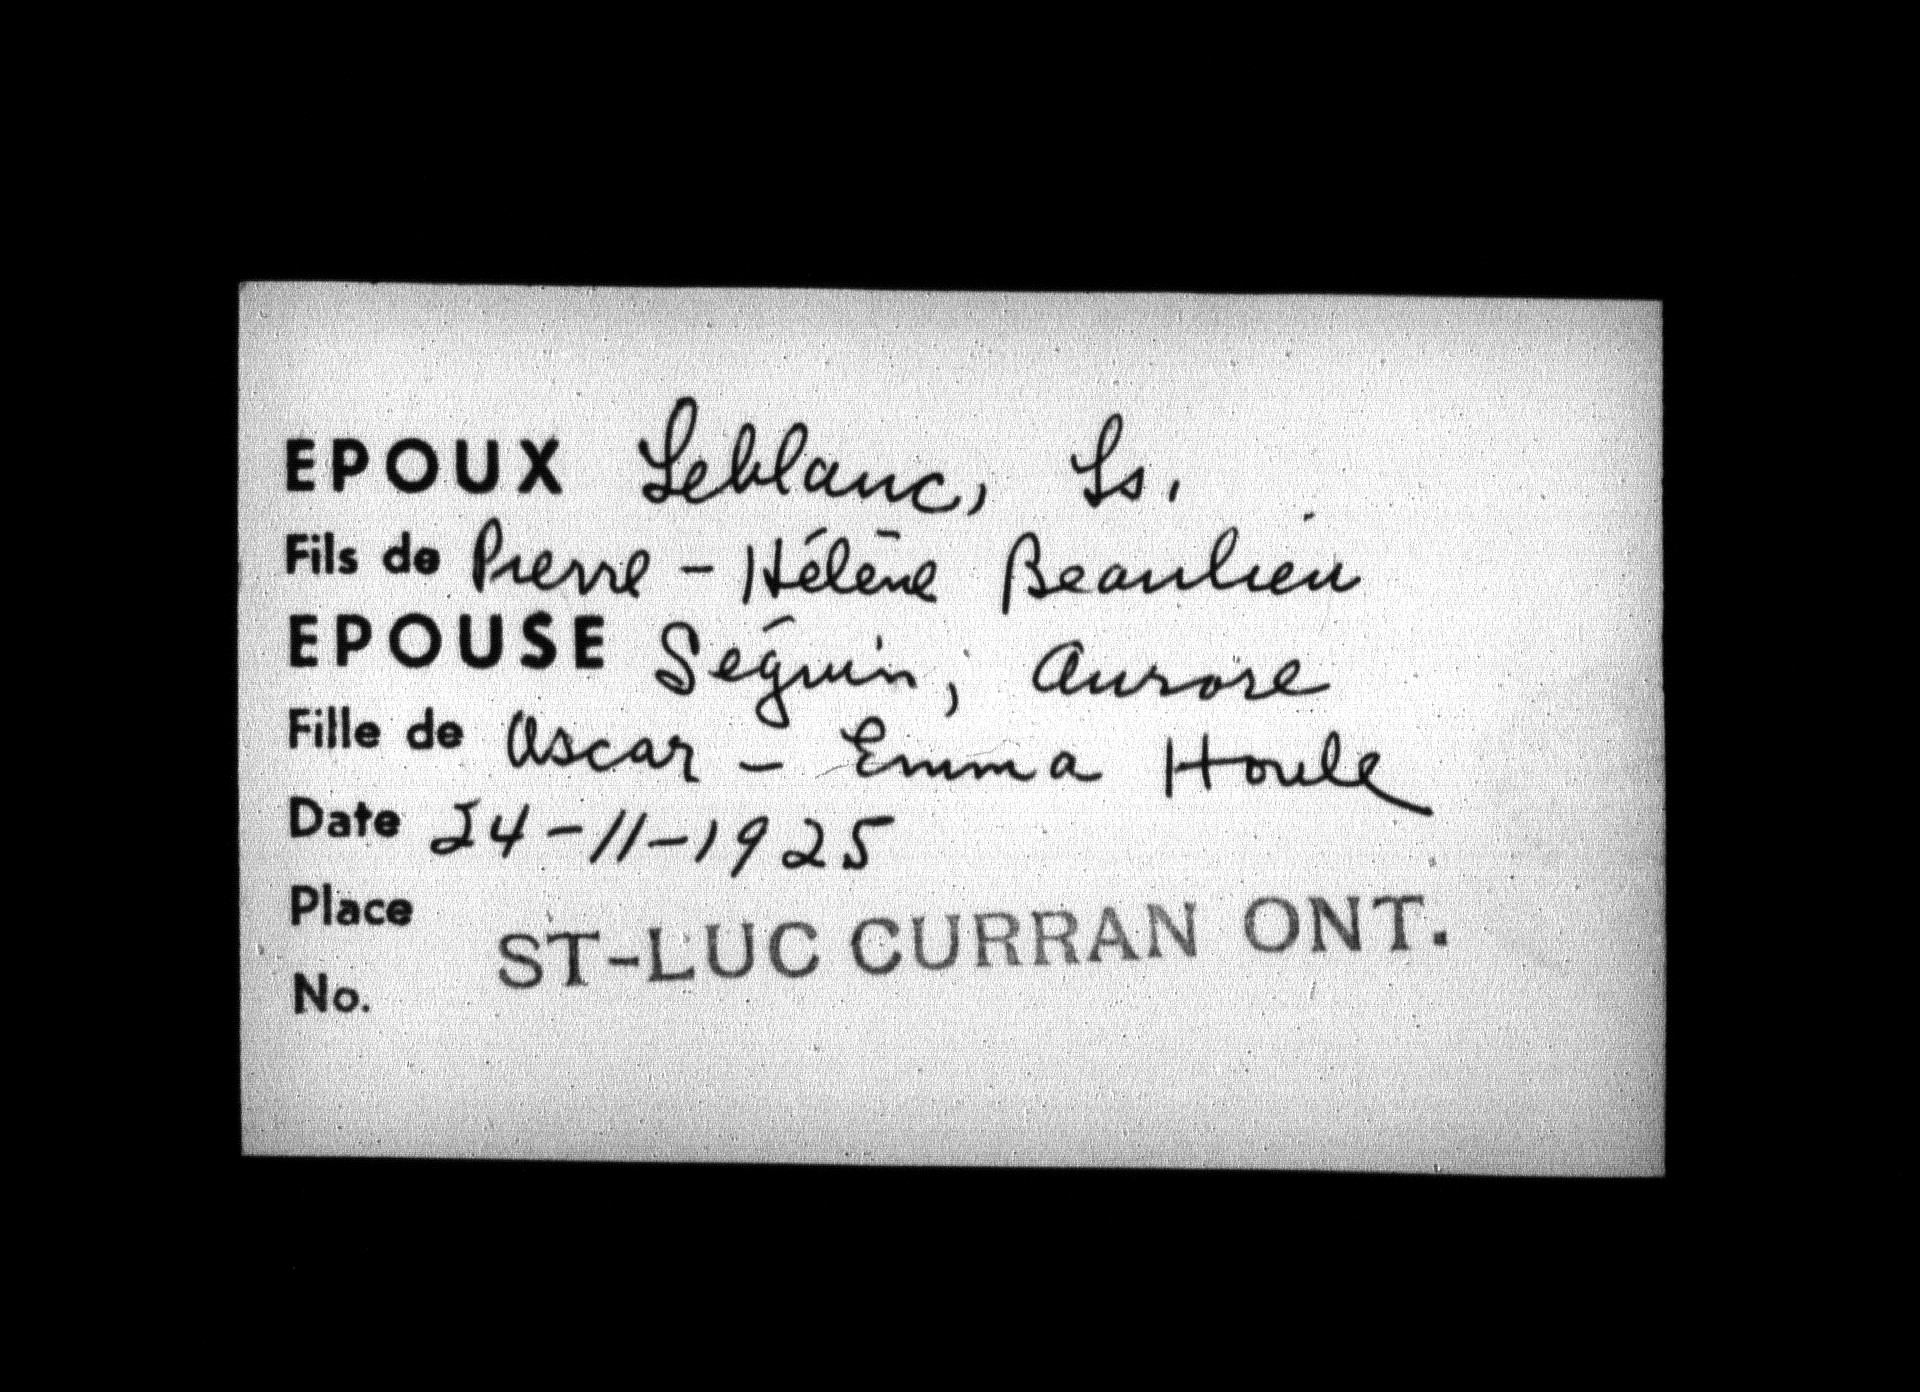 EPOUX Leblanc, Ls.
Fils de Pierre - Hélène Beaulieu
EPOUSE Séguin, Aurore
Fille de Oscar - Emma Houle
Date 24-11-1925
Place
ST-LUC CURRAN ONT.
No.